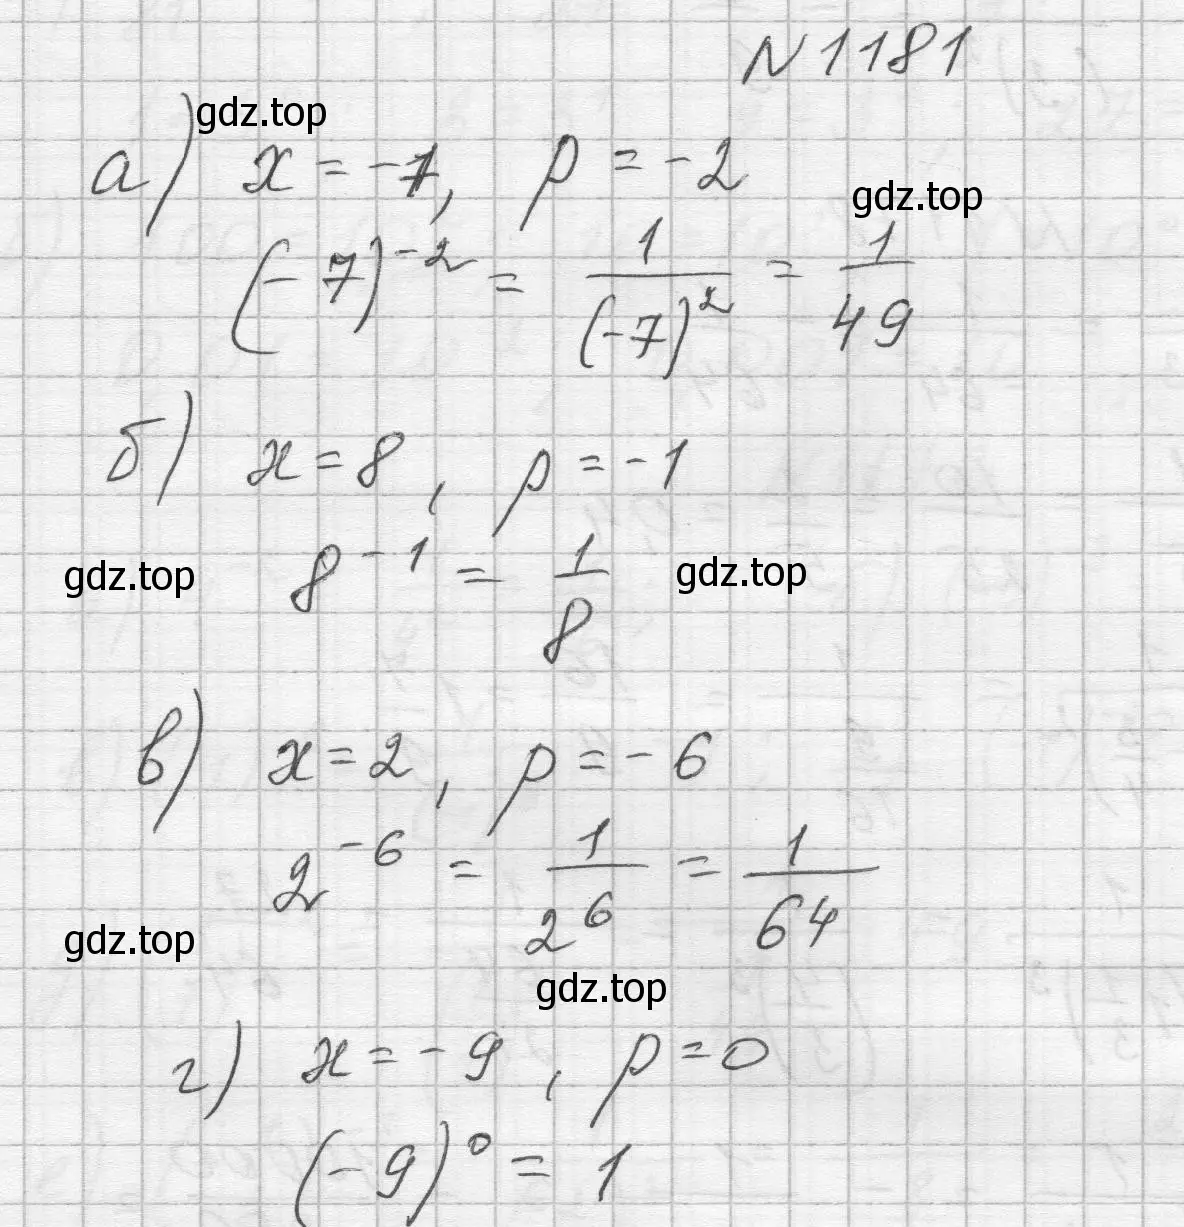 N 1181
gdz.top
а) x = -7, p = -2
gdz.top
(-7)^{-2} = \frac{1}{(-7)^2} = \frac{1}{49}
б) x = 8, p = -1
gdz.top
8^{-1} = \frac{1}{8}
gdz.top
в) x = 2, p = -6
2^{-6} = \frac{1}{2^6} = \frac{1}{64}
gdz.top
gdz.top
г) x = -9, p = 0
(-9)^0 = 1